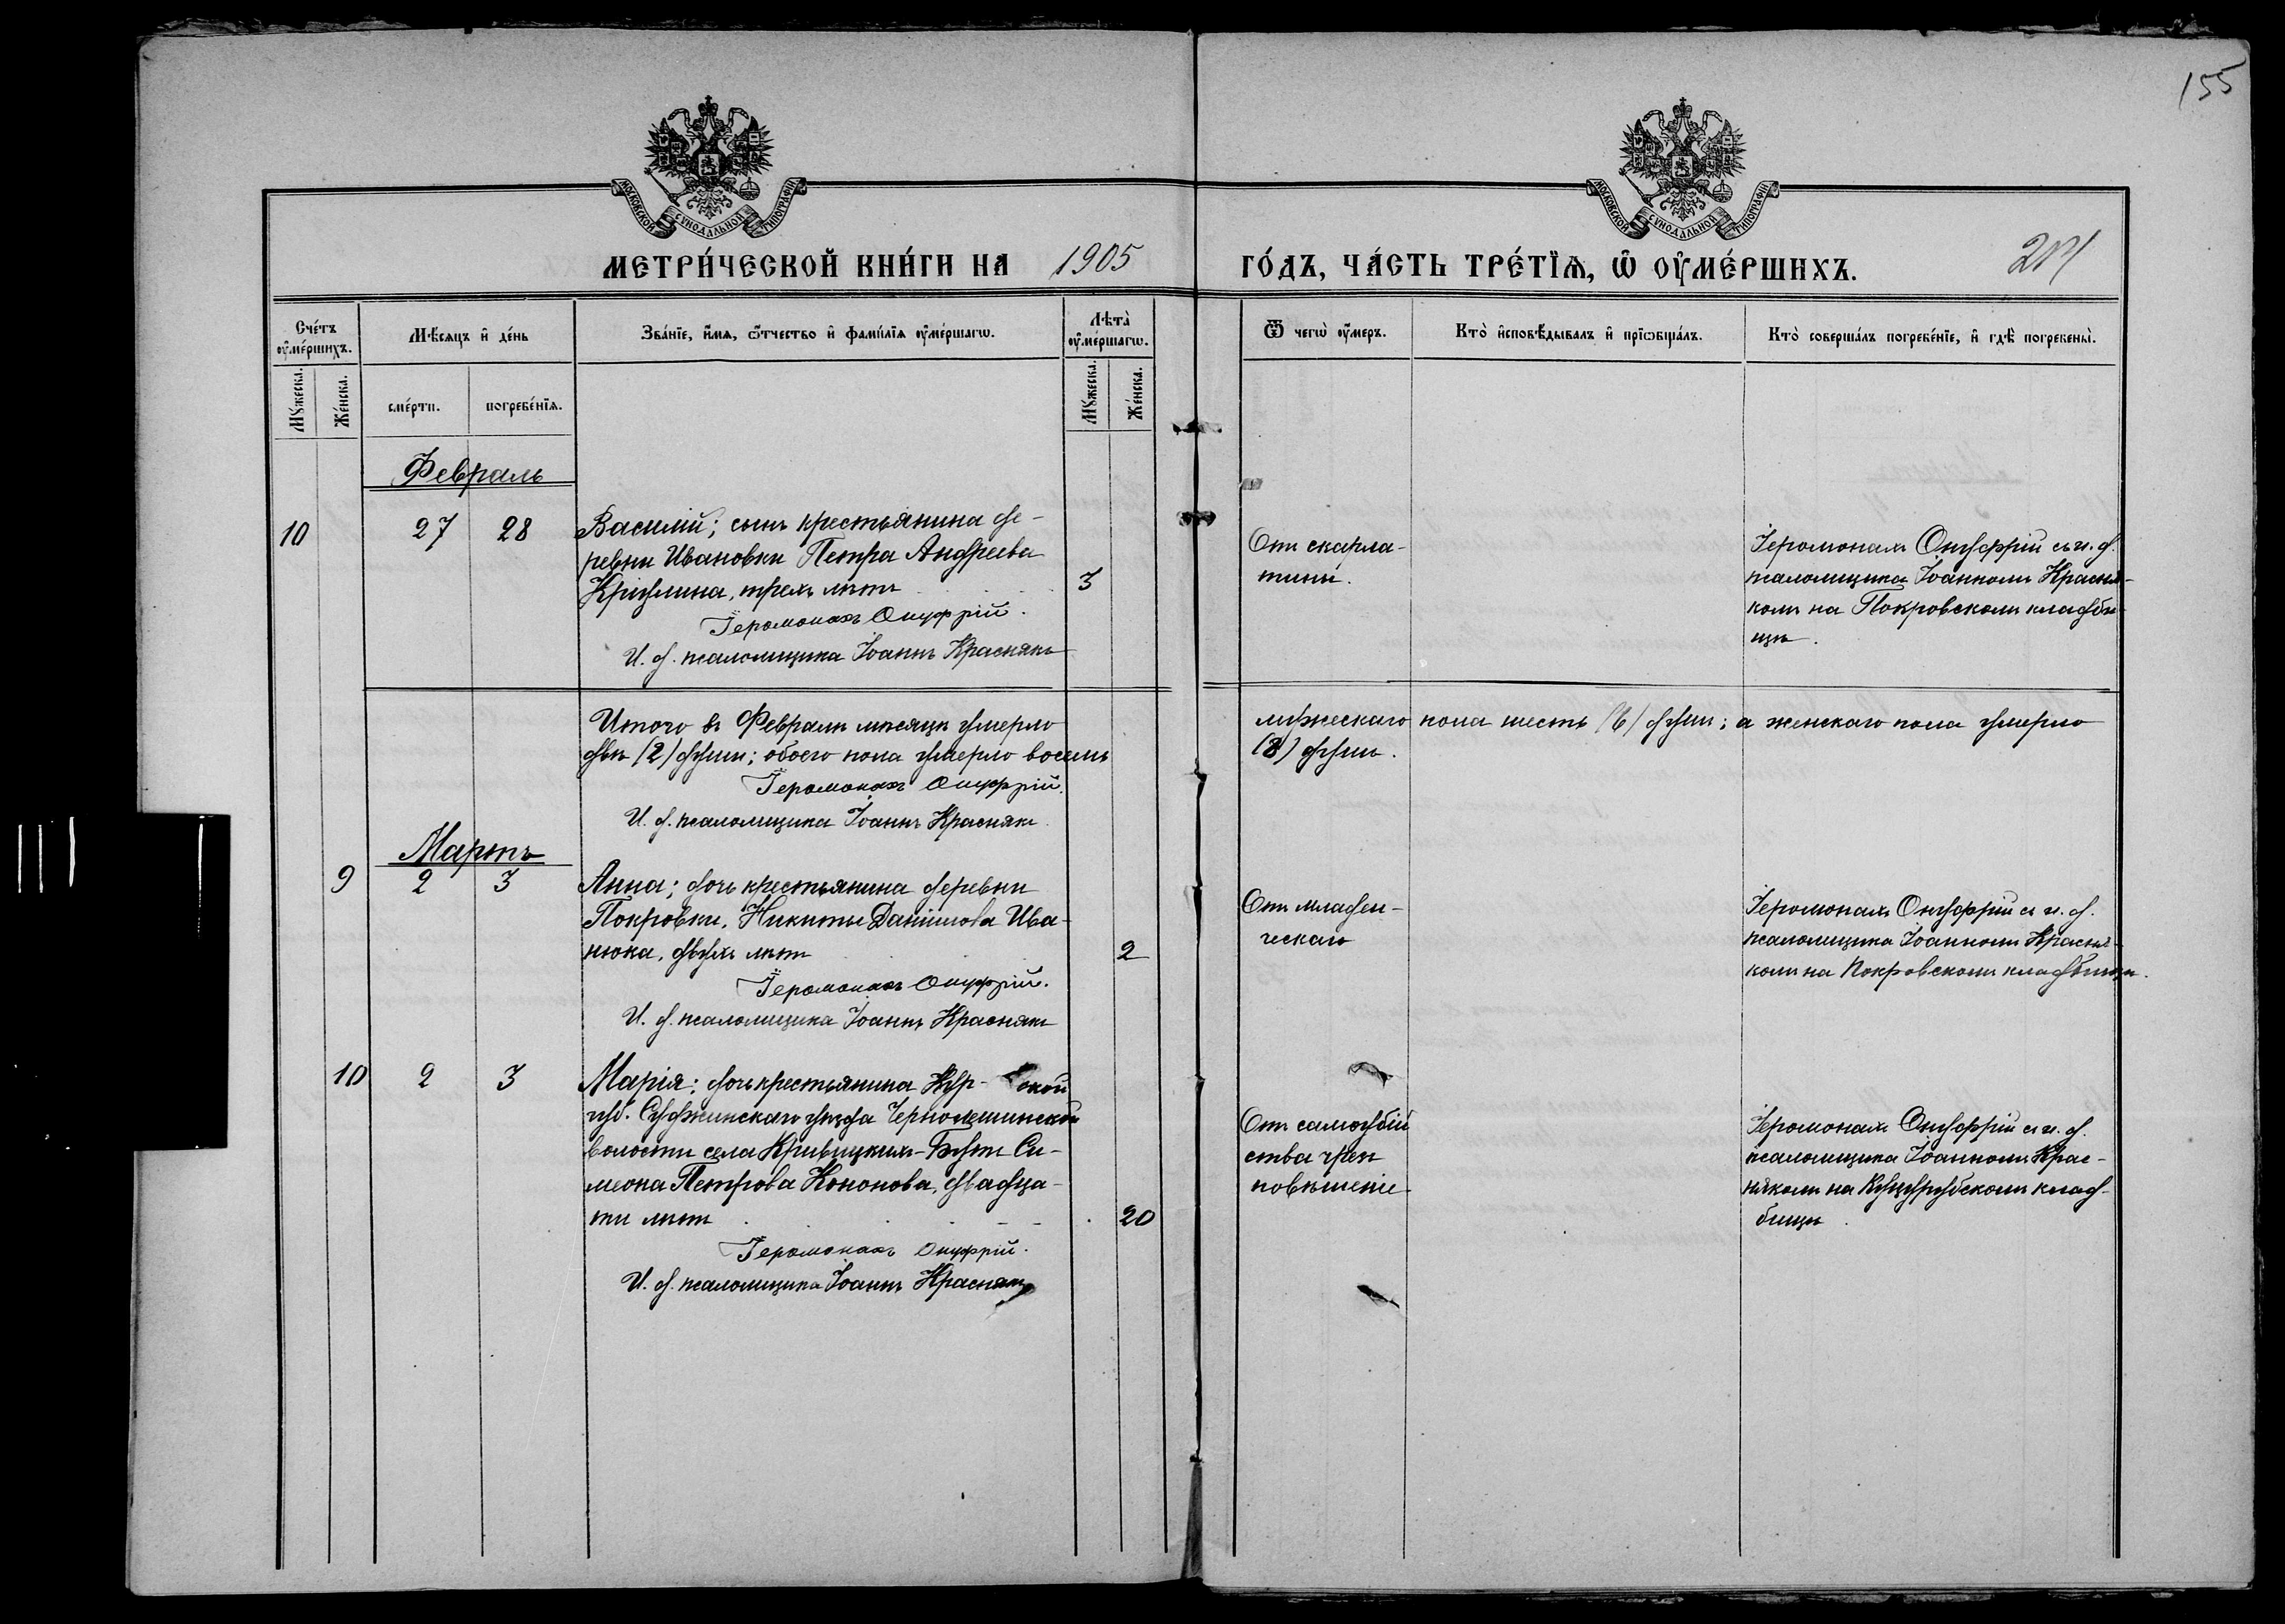 155
МОСКОВСКОЙ СУНОДАЛЬНОЙ ТИПОГРАФІИ
МОСКОВСКОЙ СУНОДАЛЬНОЙ ТИПОГРАФІИ
МЕТРИ́ЧЕСКОЙ КНИ́ГИ НА 1905 ГО́ДЪ, ЧА́СТЬ ТРЕ́ТЇѦ, Ѡ҆ ОУ҆МЕ́РШИХЪ.
Сче́тъ оу҆ме́ршихъ.
Мꙋ́жеска.
Же́нска.
Мѣ́сѧцъ и҆ де́нь
сме́рти.
погребе́нїѧ.
Зва́нїе, и҆́мѧ, ѻ҆́тчество и҆ фами́лїѧ оу҆ме́ршагѡ.
Лѣта̀ оу҆ме́ршагѡ.
Мꙋ́жеска.
Же́нска.
Ѿ чегѡ̀ оу҆́меръ.
Кто̀ и҆сповѣ́дывалъ и҆ прїѡбща́лъ.
Кто̀ соверша́лъ погребе́нїе, и҆ гдѣ̀ погребены̀.
Февраль
10 27 28
Василій; сынъ крестьянина де-
ревни Ивановки Петра Андреева
трехъ лѣтъ
3
Іеромонахъ Онуфрій.
И. д. псаломщика Іоаннъ Краснякъ
Отъ скарла-
тины.
Іеромонахъ Онуфрій съ и. д.
псаломщика Іоанномъ Красня-
комъ на Покровскомъ кладби-
щѣ.
Итого въ Февралѣ мѣсяцѣ умерло мужескаго пола шесть (6) душъ; а женскаго пола умерло
двѣ (2) души; обоего пола умерло восемь (8) душъ.
Іеромонахъ Онуфрій.
И. д. псаломщика Іоаннъ Краснякъ
Мартъ
9 2 3
Анна; дочь крестьянина деревни
Покровки, Никиты Даніилова Ива-
нюка, двухъ лѣтъ
2
Іеромонахъ Онуфрій.
И. д. псаломщика Іоаннъ Краснякъ
Отъ младен-
ческаго
Іеромонахъ Онуфрій съ и. д.
псаломщика Іоанномъ Красня-
комъ на Покровскомъ кладбищѣ.
10 2 3
Марія; дочь крестьянина Кур- ской
губ. Суджинскаго уѣзда
волости села Кривицкихъ-Будъ Си-
меона Петрова Кононова, двадца-
ти лѣтъ
20
Іеромонахъ Онуфрій.
И. д. псаломщика Іоаннъ Краснякъ
Отъ самоубій
ства чрез
повѣшеніе
Іеромонахъ Онуфрій съ и. д.
псаломщика Іоанномъ Крас-
някомъ на Куцурубскомъ клад-
бищѣ.